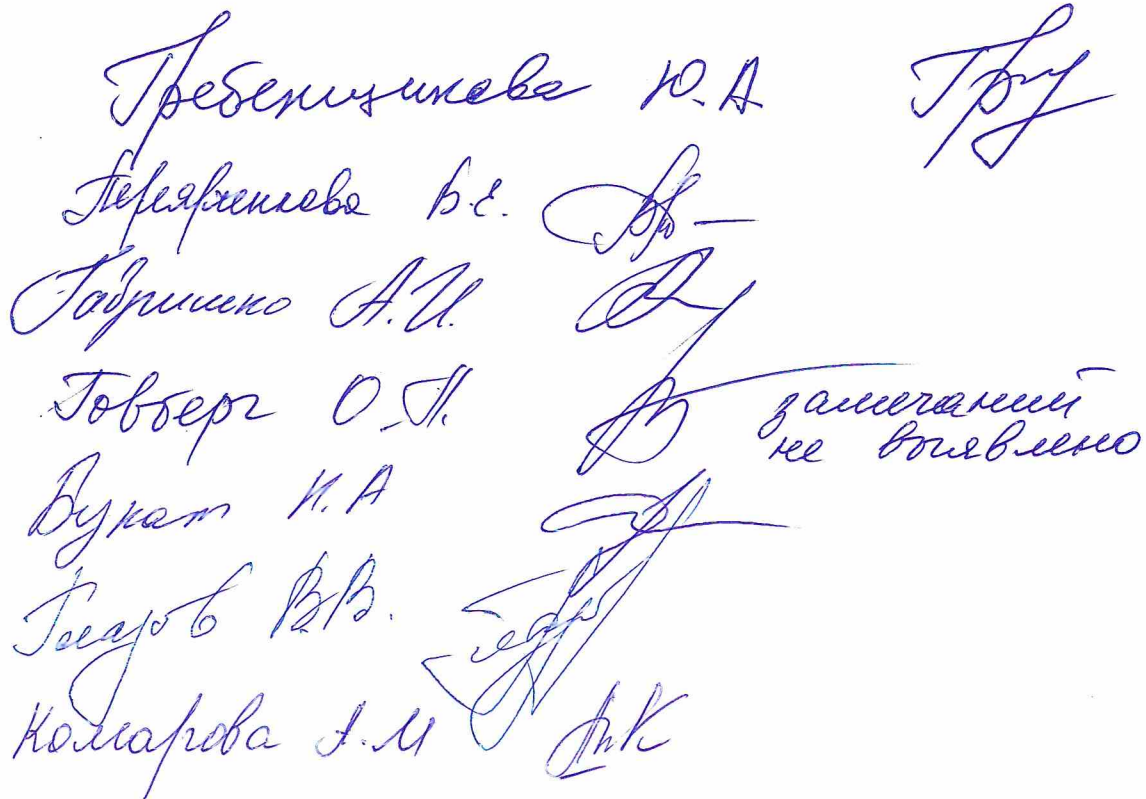 Гребенщикова Ю.А
В.Е.
Габришко А.И.
Говберг О.П. замечаний
не выявлено
Букат Н.А
Глазов В.В.
Комарова А.М